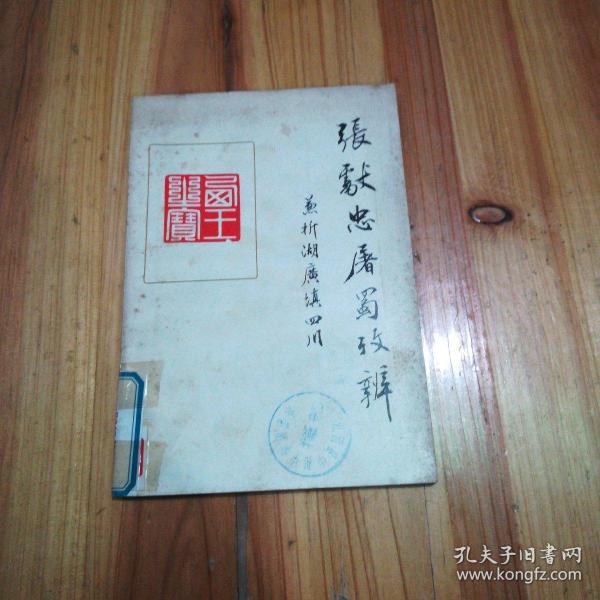 張献忠屠蜀攷辨
兼析湖廣填四川
西王之寶
孔夫子旧书网
www.kongfz.com